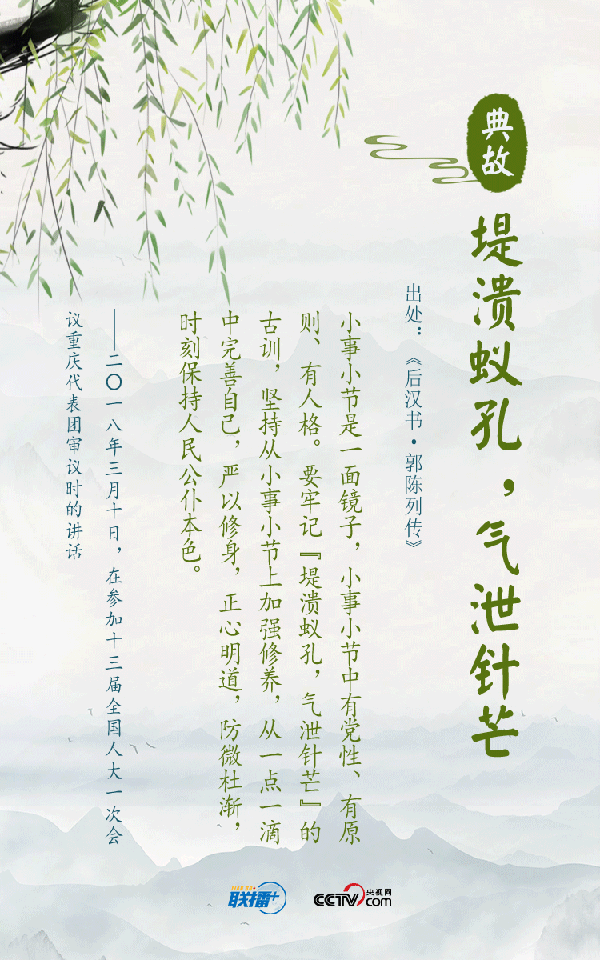 典故
堤溃蚁孔，气泄针芒
出处：《后汉书·郭陈列传》
小事小节是一面镜子，小事小节中有党性、有原
则、有人格。要牢记『堤溃蚁孔，气泄针芒』的
古训，坚持从小事小节上加强修养，从一点一滴
中完善自己，严以修身，正心明道，防微杜渐，
时刻保持人民公仆本色。
——二〇一八年三月十日，在参加十三届全国人大一次会
议重庆代表团审议时的讲话
联播+
CCTV.com 央视网